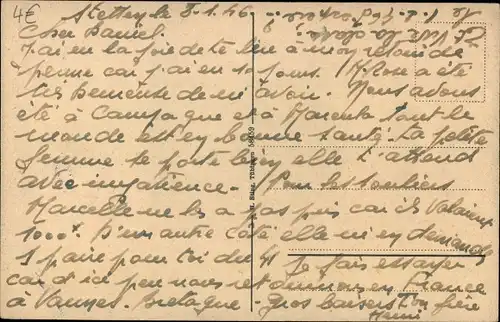 4€
Stettay le 8.1.46
Cher Daniel.
J'ai eu la joie de te lire à mon retour de
perme car j'ai eu 10 jours. M. Rose a été
très heureuse de m'avoir. Nous avons
été à Campagne et à Marenla tout le
monde est en bonne santé. La petite
femme se porte bien elle t'attend
avec impatience - Pour les souliers
Marcelle ne les a pas pris car ils valaient
1000f. D'un autre côté elle m'en demande
1 paire pour toi du 41 je fais essayer
car d'ici peu nous retournons en France
à Vannes. Bretagne - Gros baisers Ton frère
Henri